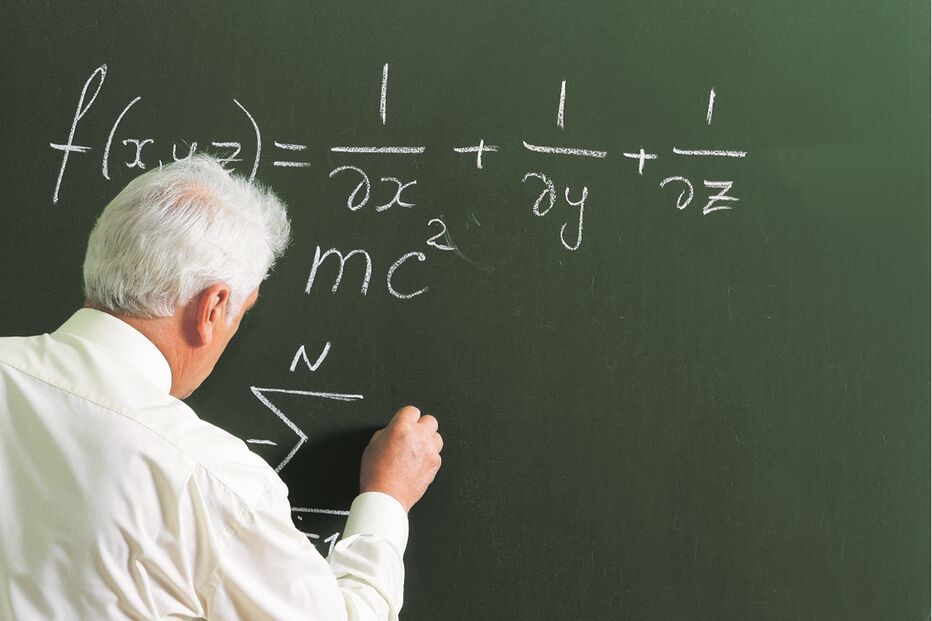 f(x,y,z) = 1/∂x + 1/∂y + 1/∂z
mc²
N
– Σ
i=1